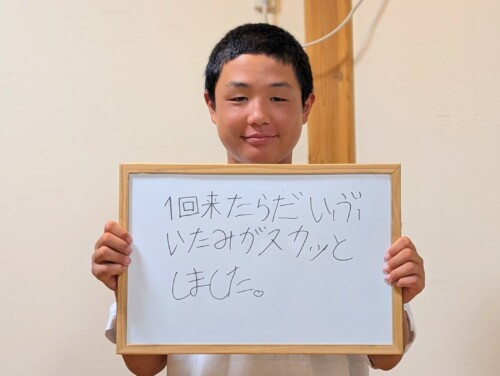 1回来たらだいぶ
いたみがスカッと
しました。